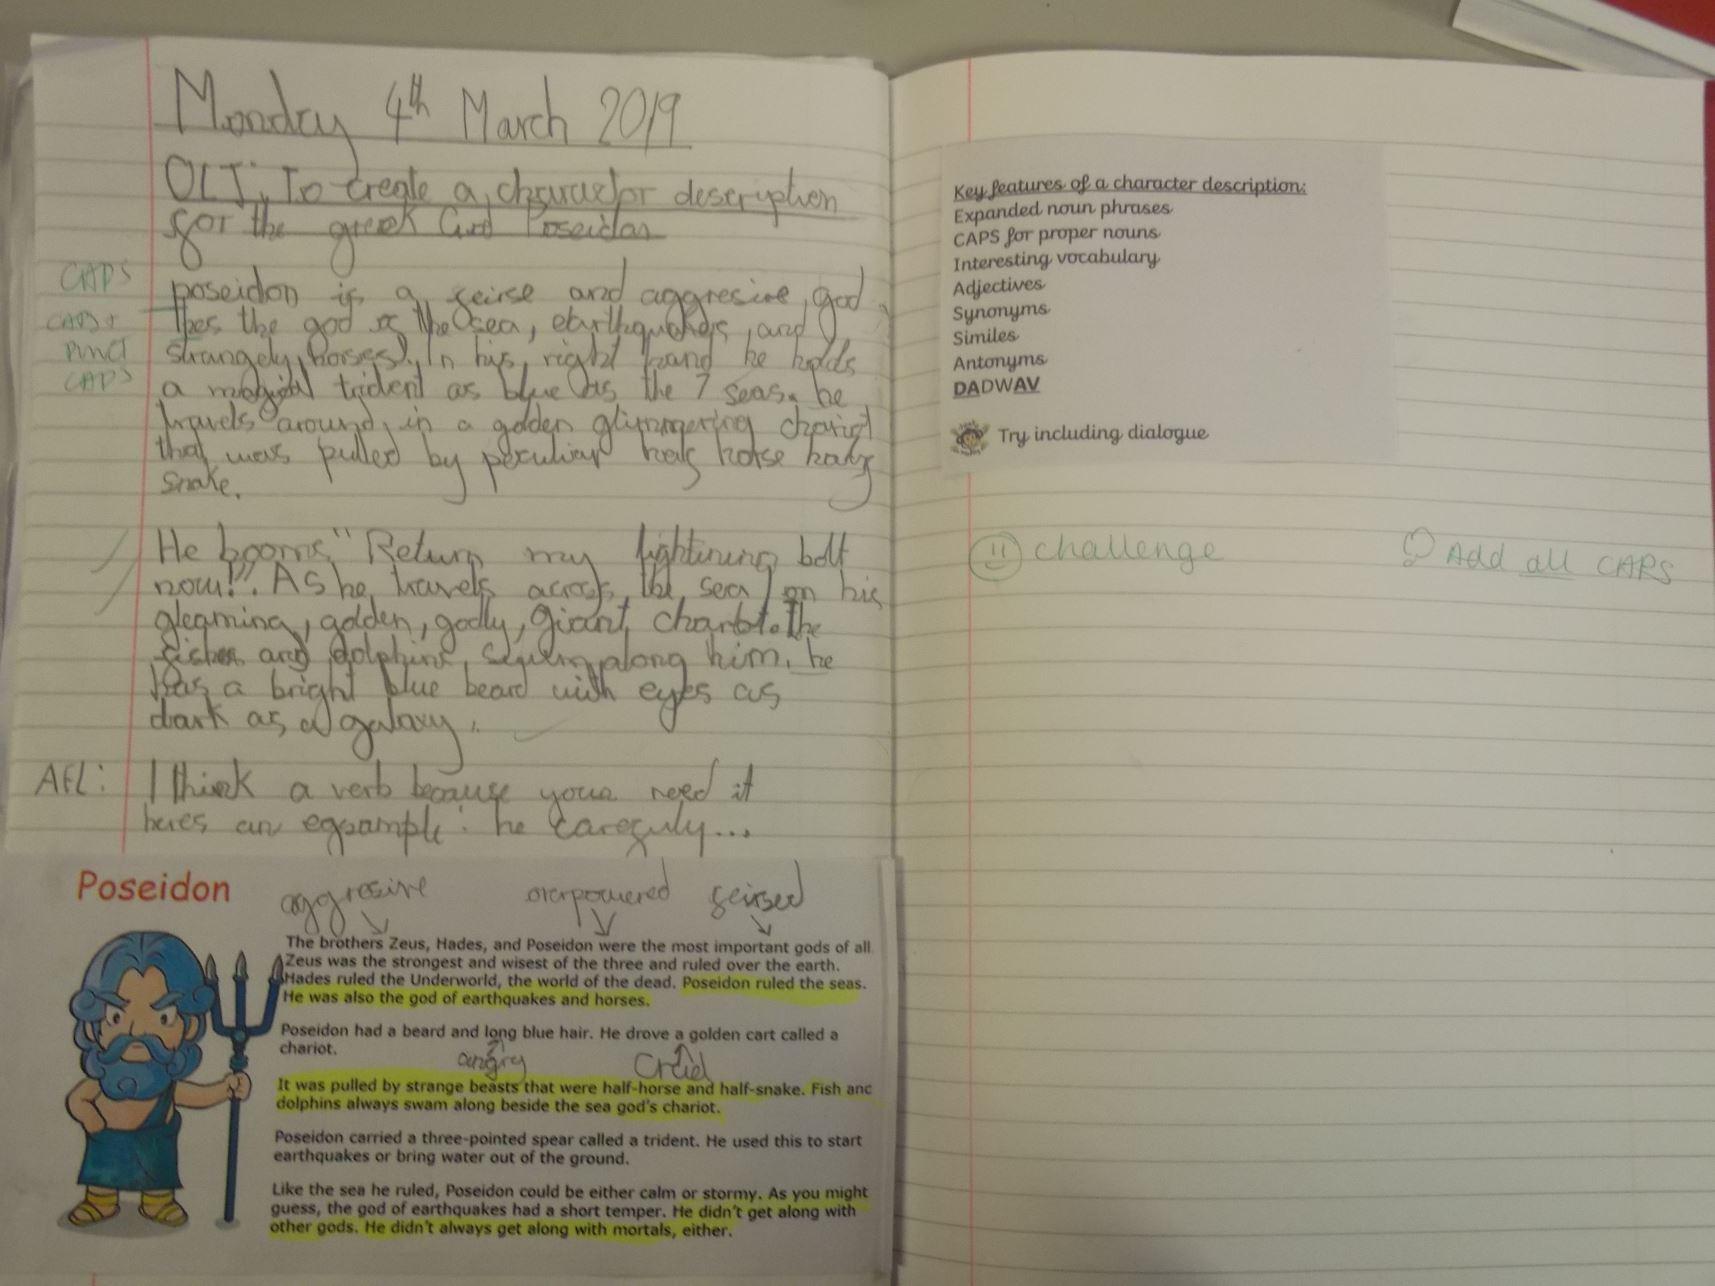 Monday 4th March 2019
OLI: To create a character description
for the greek God Poseidon
CAPS
poseidon is a feirse and aggresive god
CAPS +
hes the god of the sea, earthquakes, and
PUNCT
strangely, horses). In his right hand he holds
CAPS
a magical trident as blue as the 7 seas. he
travels around in a golden glimmering chariot
that was pulled by peculiar half horse half
snake.
He booms "Return my lightining bolt
now!". As he travels across the sea on his
gleaming, golden, godly, giant chariot. The
fishes and dolphins, along him. he
has a bright blue beard with eyes as
dark as a galaxy.
AfL: I think a verb because your need it
heres an egsample: he carefuly...
Poseidon
aggresive overpowered feirsed
The brothers Zeus, Hades, and Poseidon were the most important gods of all.
Zeus was the strongest and wisest of the three and ruled over the earth.
Hades ruled the Underworld, the world of the dead. Poseidon ruled the seas.
He was also the god of earthquakes and horses.
Poseidon had a beard and long blue hair. He drove a golden cart called a
chariot.
angry Cruel
It was pulled by strange beasts that were half-horse and half-snake. Fish and
dolphins always swam along beside the sea god's chariot.
Poseidon carried a three-pointed spear called a trident. He used this to start
earthquakes or bring water out of the ground.
Like the sea he ruled, Poseidon could be either calm or stormy. As you might
guess, the god of earthquakes had a short temper. He didn't get along with
other gods. He didn't always get along with mortals, either.
Key features of a character description:
Expanded noun phrases
CAPS for proper nouns
Interesting vocabulary
Adjectives
Synonyms
Similes
Antonyms
DADWAV
Try including dialogue
challenge
Add all CAPS